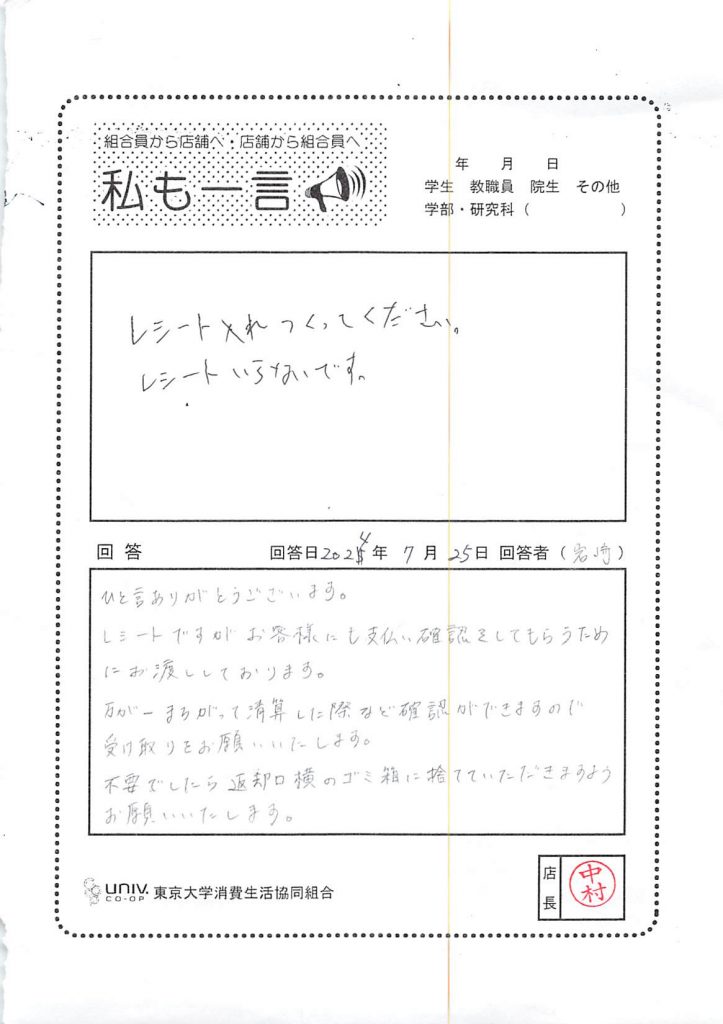 組合員から店舗へ・店舗から組合員へ
私も一言
年 月 日
学生 教職員 院生 その他
学部・研究科（ ）
レシート入れつくってください。
レシートいらないです。
回答 回答日2024年 7月 25日 回答者（岩崎）
ひと言ありがとうございます。
レシートですがお客様にも支払い確認をしてもらうため
にお渡ししております。
万が一まちがって清算した際など確認ができますので
受け取りをお願いいたします。
不要でしたら返却口横のゴミ箱に捨てていただきますよう
お願いいたします。
UNIV. CO-OP 東京大学消費生活協同組合
店長
中村